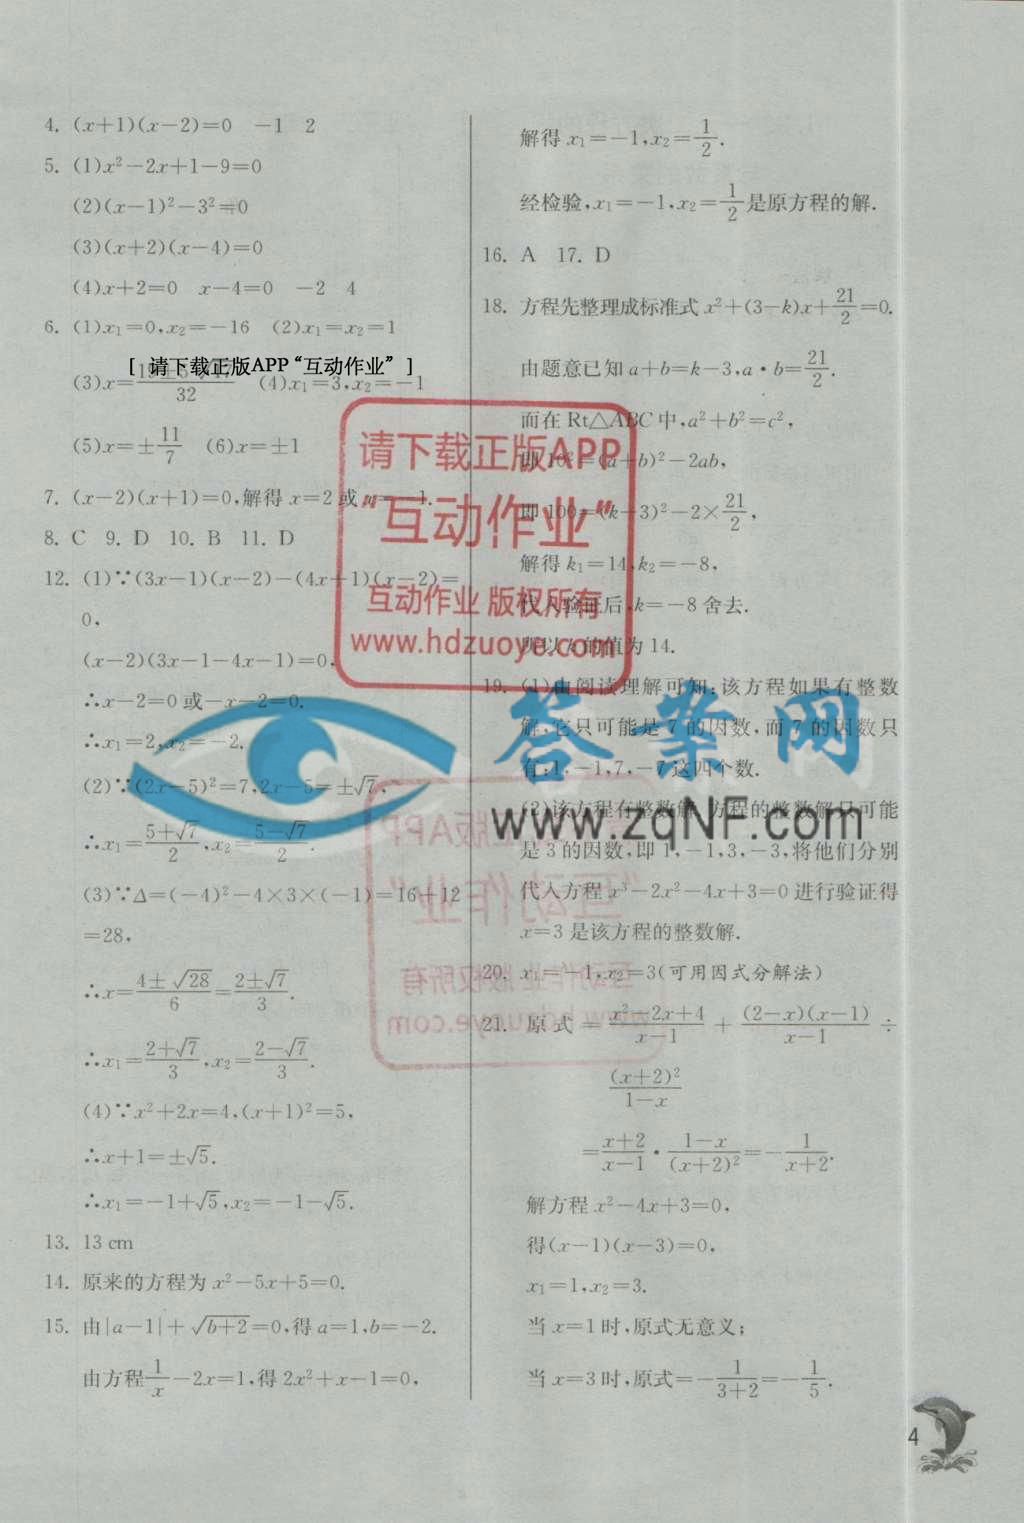 4. (x+1)(x-2)=0 -1 2
5. (1)x²-2x+1-9=0
(2)(x-1)²-3²=0
(3)(x+2)(x-4)=0
(4)x+2=0 x-4=0 -2 4
6. (1)x₁=0,x₂=-16 (2)x₁=x₂=1
[ 请下载正版APP“互动作业” ]
(3)x= /32 (4)x₁=3,x₂=-1
(5)x=±11/7 (6)x=±1
7. (x-2)(x+1)=0,解得 x=2 或 x=-1.
8. C 9. D 10. B 11. D
12. (1)∵(3x-1)(x-2)-(4x+1)(x-2)=
0,
(x-2)(3x-1-4x-1)=0,
∴x-2=0 或-x-2=0.
∴x₁=2,x₂=-2.
(2)∵(2x-5)²=7,2x-5=±√7,
∴x₁=(5+√7)/2,x₂=(5-√7)/2.
(3)∵Δ=(-4)²-4×3×(-1)=16+12
=28,
∴x=(4±√28)/6=(2±√7)/3.
∴x₁=(2+√7)/3,x₂=(2-√7)/3.
(4)∵x²+2x=4,(x+1)²=5,
∴x+1=±√5.
∴x₁=-1+√5,x₂=-1-√5.
13. 13 cm
14. 原来的方程为 x²-5x+5=0.
15. 由|a-1|+√(b+2)=0,得 a=1,b=-2.
由方程1/x-2x=1,得 2x²+x-1=0,
解得 x₁=-1,x₂=1/2.
经检验,x₁=-1,x₂=1/2是原方程的解.
16. A 17. D
18. 方程先整理成标准式 x²+(3-k)x+21/2=0.
由题意已知 a+b=k-3,a·b=21/2.
而在 Rt△ABC 中,a²+b²=c²,
即 10²=(a+b)²-2ab,
即 100=(k-3)²-2×21/2,
解得 k₁=14,k₂=-8,
代入验证后,k=-8 舍去.
所以 k 的值为 14.
19. (1)由阅读理解可知:该方程如果有整数
解,它只可能是 7 的因数,而 7 的因数只
有:1,-1,7,-7 这四个数.
(2)该方程有整数解,方程的整数解只可能
是 3 的因数,即 1,-1,3,-3,将他们分别
代入方程 x³-2x²-4x+3=0 进行验证得
x=3 是该方程的整数解.
20. x₁=-1,x₂=3(可用因式分解法)
21. 原式=(x²-2x+4)/(x-1)+(2-x)(x-1)/(x-1)÷
(x+2)²/(1-x)
=(x+2)/(x-1)·(1-x)/(x+2)²=-1/(x+2).
解方程 x²-4x+3=0,
得(x-1)(x-3)=0,
x₁=1,x₂=3.
当 x=1 时,原式无意义;
当 x=3 时,原式=-1/(3+2)=-1/5.
请下载正版APP
“互动作业”
互动作业 版权所有
www.hdzuoye.com
答案网
www.zqNF.com
4